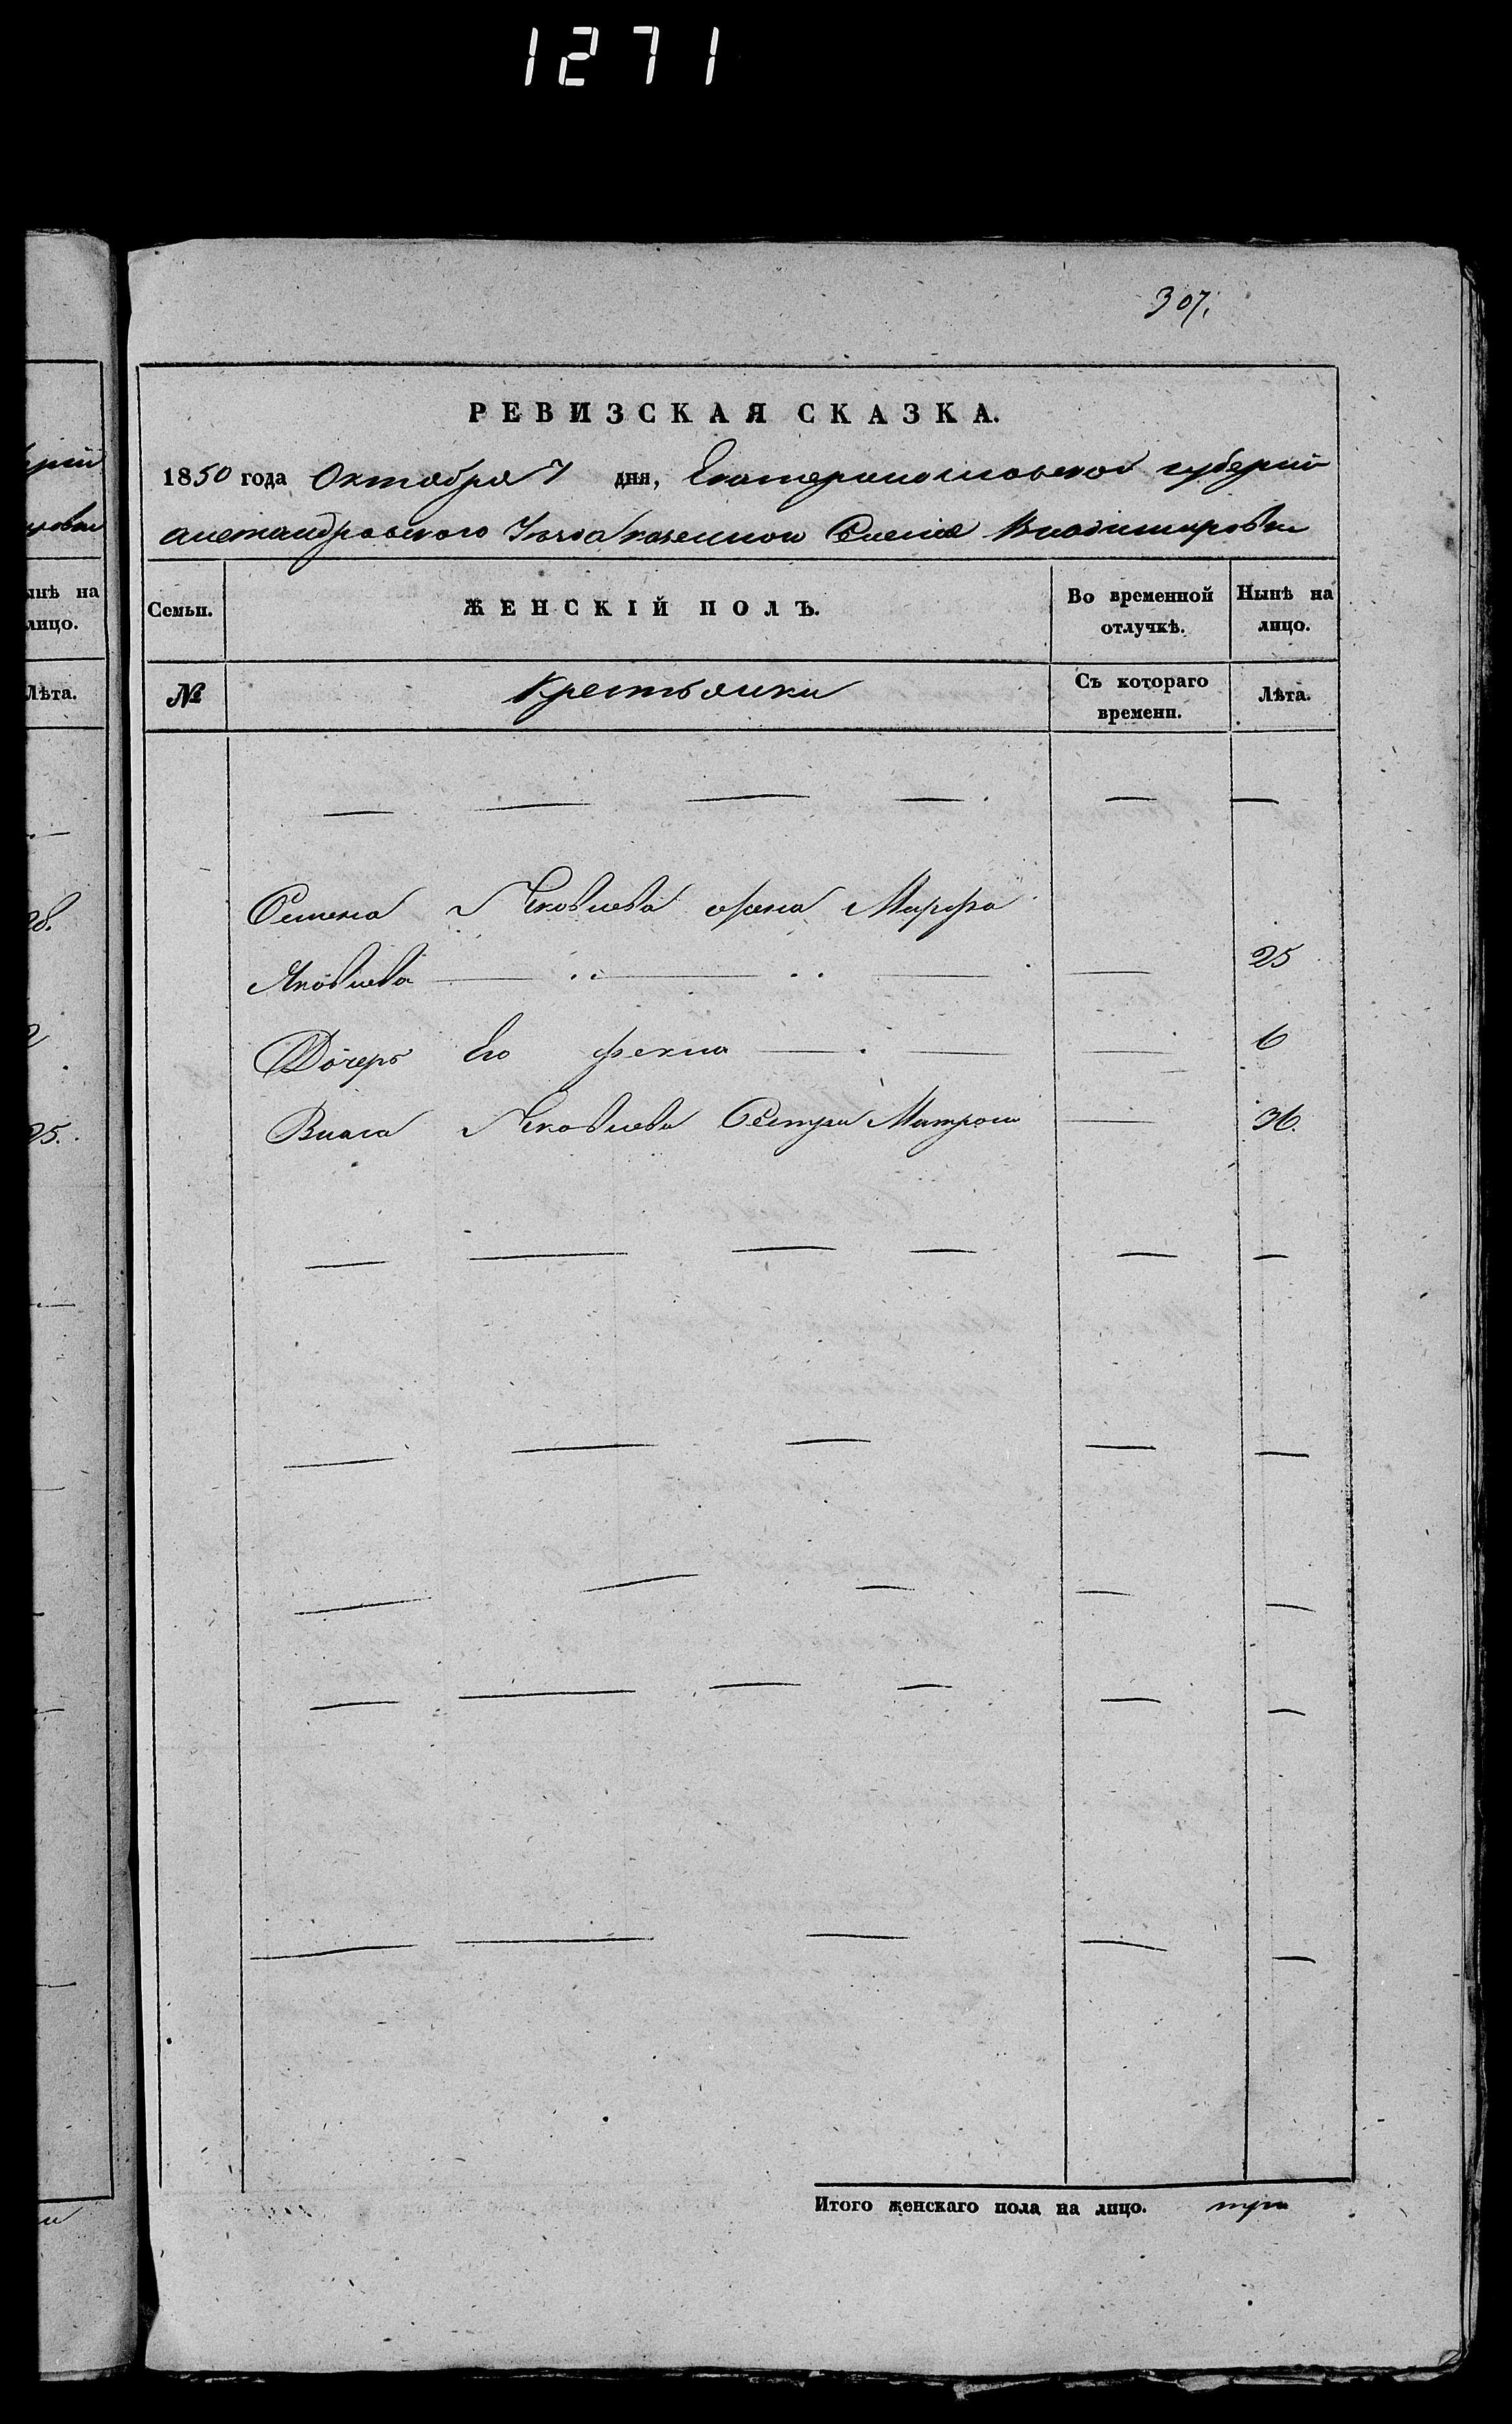 1271
307.
РЕВИЗСКАЯ СКАЗКА.
1850 года Октября 7 дня, Екатеринославской губернии
александровского Уезда казенной Селения Владимировки
Семьи. ЖЕНСКІЙ ПОЛЪ. Во временной отлучкѣ. Нынѣ на лицо.
№ Крестьянки Съ котораго времени. Лѣта.
Семена Яковлева жена Марфа
Яковлева 25
Дочерь Его фекла 6
Власа Яковлева Сестра Матрона 36.
Итого женскаго пола на лицо. три
ынѣ на
лицо.
Лѣта.
28.
25.